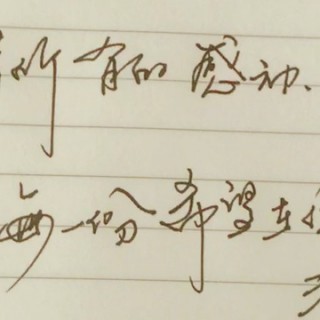 所有的感动
每一份希望在